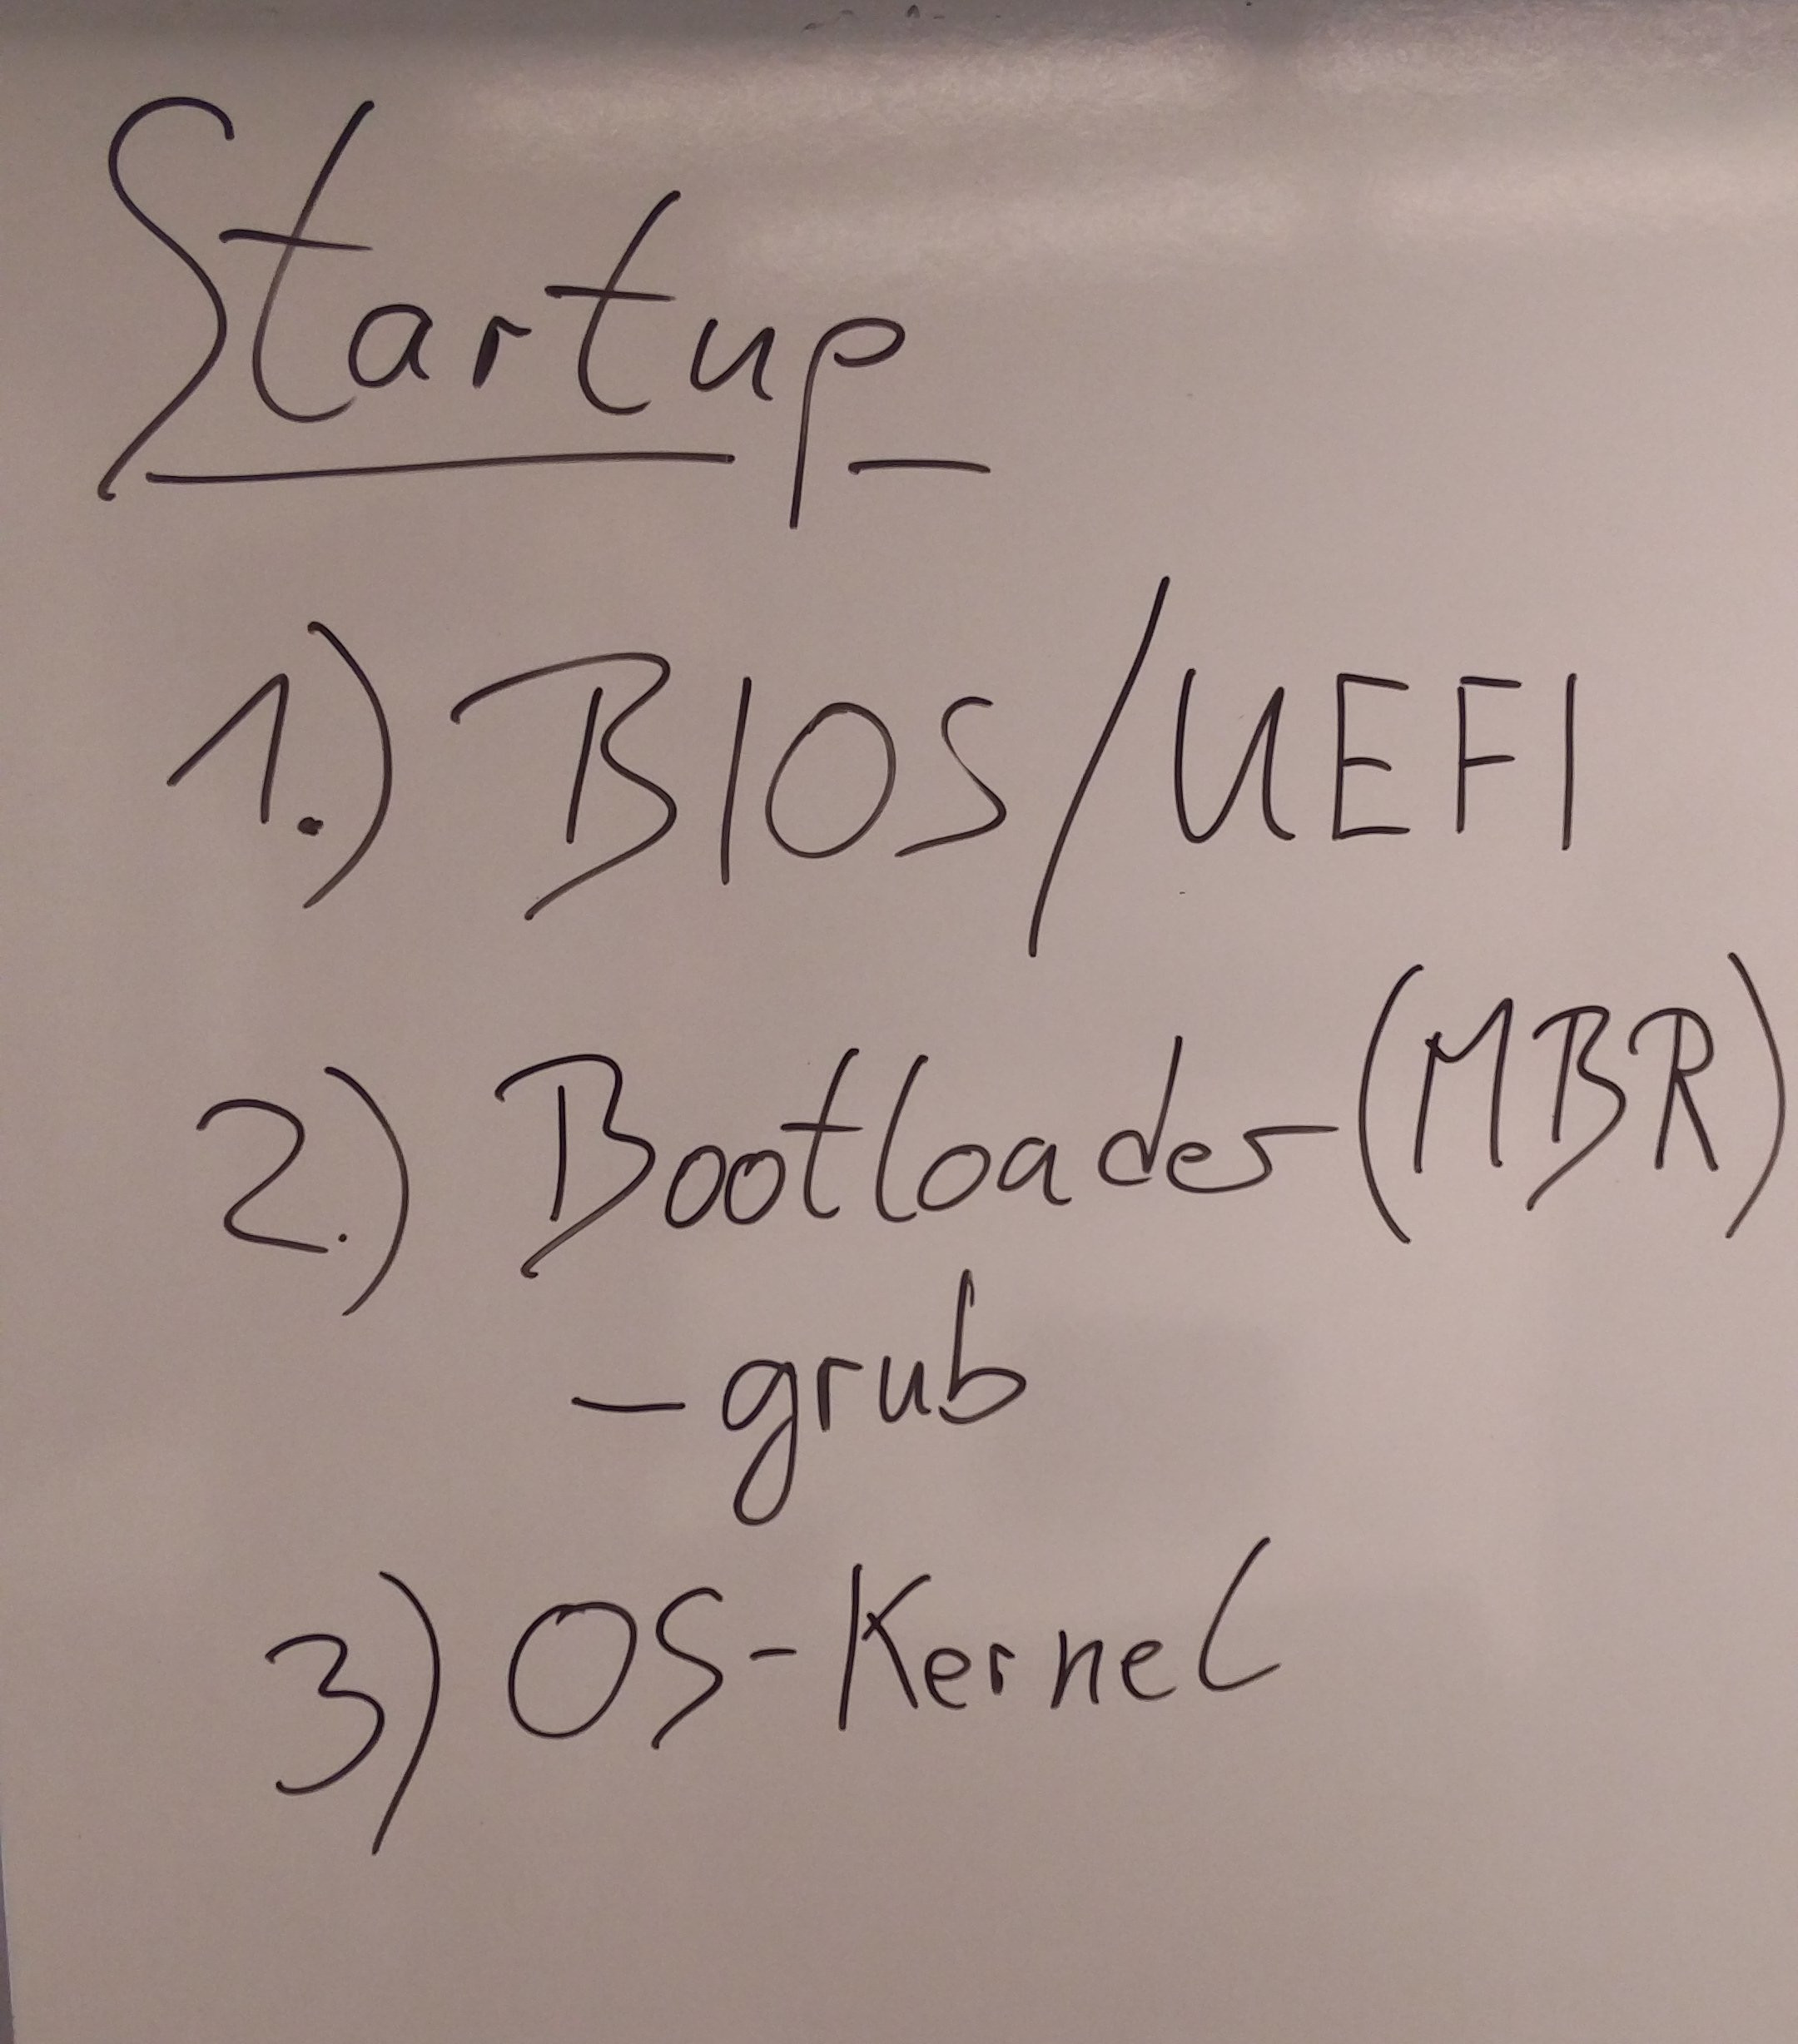 Startup
1.) BIOS/UEFI
2.) Bootloader (MBR)
- grub
3) OS-Kernel